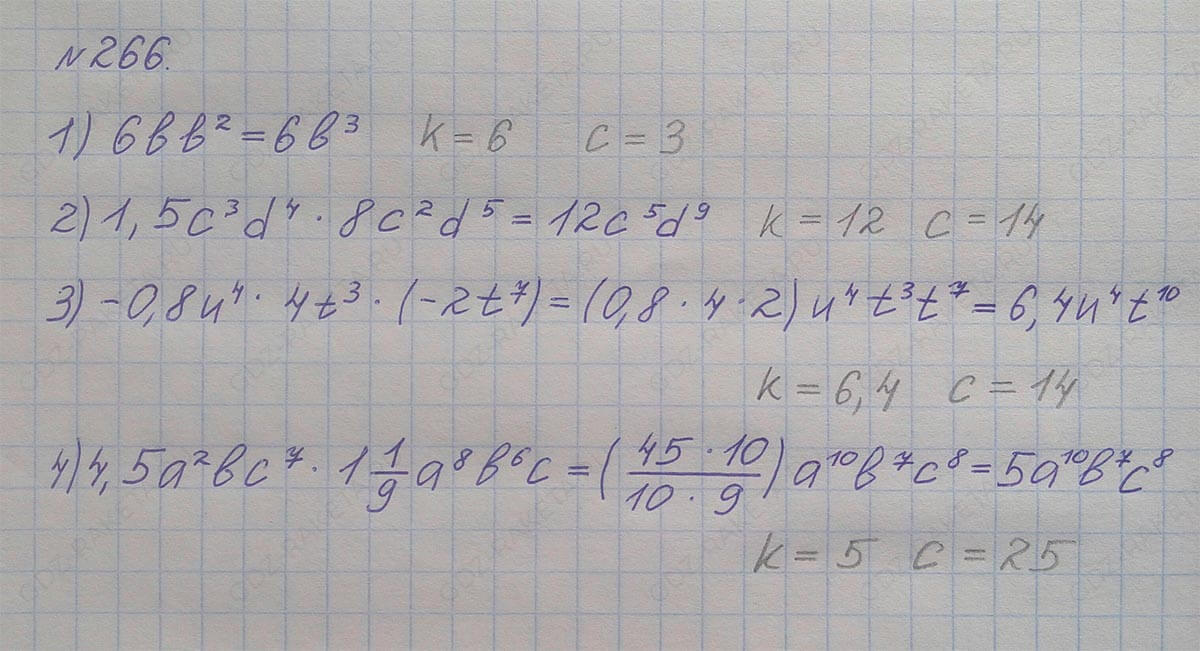 №266.
1) 6bb² = 6b³ k = 6 c = 3
2) 1,5c³d⁴ · 8c²d⁵ = 12c⁵d⁹ k = 12 c = 14
3) -0,8u⁴ · 4t³ · (-2t⁷) = (0,8 · 4 · 2) u⁴t³t⁷ = 6,4u⁴t¹⁰
k = 6,4 c = 14
4) 4,5a²bc⁷ · 1 1/9 a⁸b⁶c = (45 · 10 / 10 · 9) a¹⁰b⁷c⁸ = 5a¹⁰b⁷c⁸
k = 5 c = 25